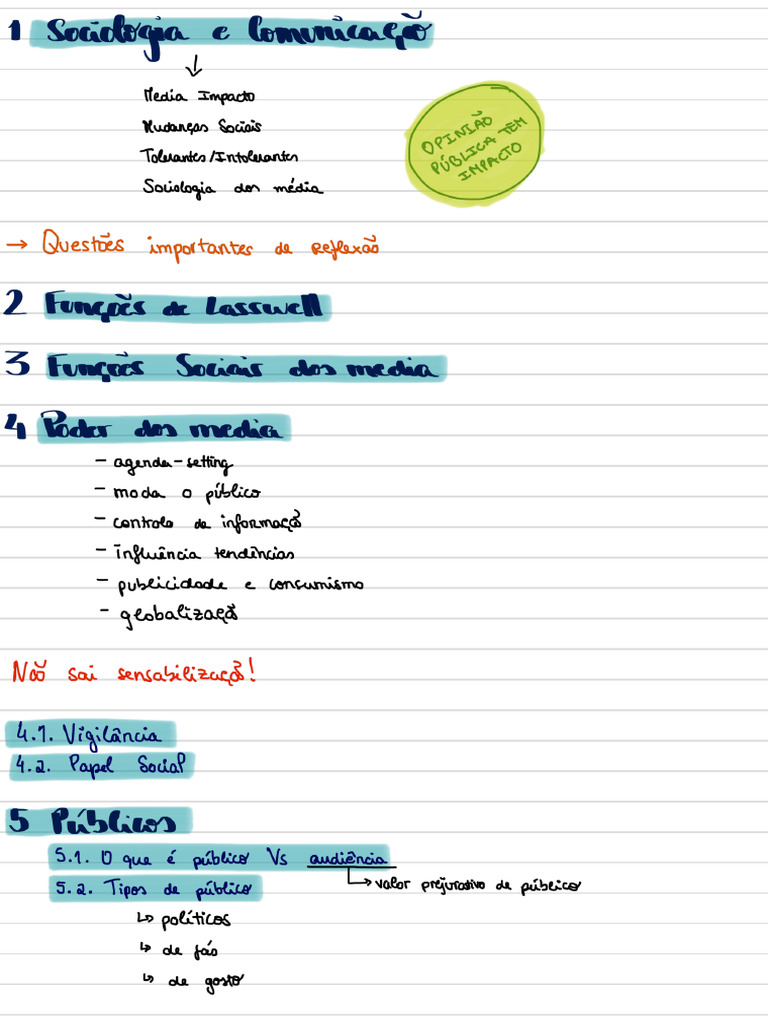 1 Sociologia e Comunicação
Media Impacto
Mudanças Sociais
Tolerantes/Intolerantes
Sociologia dos média
OPINIÃO
PÚBLICA TEM
IMPACTO
→ Questões importantes de reflexão
2 Funções de Lasswell
3 Funções Sociais dos media
4 Poder dos media
- agenda-setting
- moda o público
- controlo da informação
- influência tendências
- publicidade e consumismo
- globalização
Não sai sensabilização!
4.1. Vigilância
4.2. Papel Social
5 Públicos
5.1. O que é público Vs audiência
↳ valor prejurativo de público
5.2. Tipos de público
↳ políticos
↳ de fãs
↳ de gosto